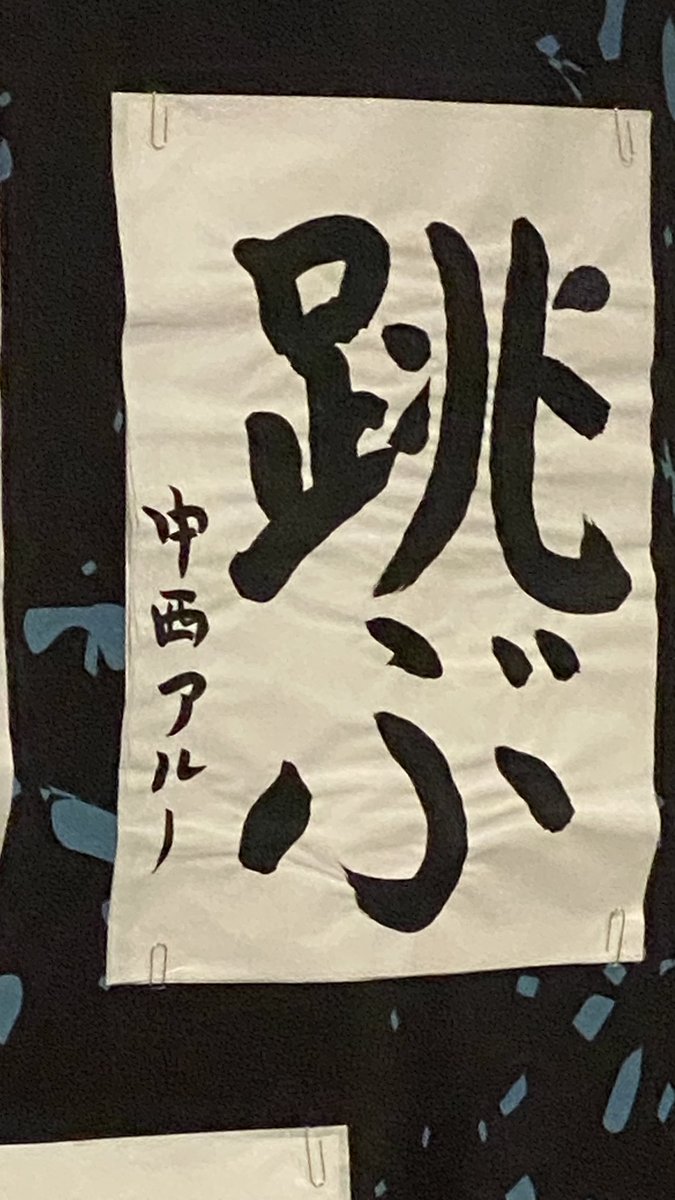 跳ぶ
中西アルノ